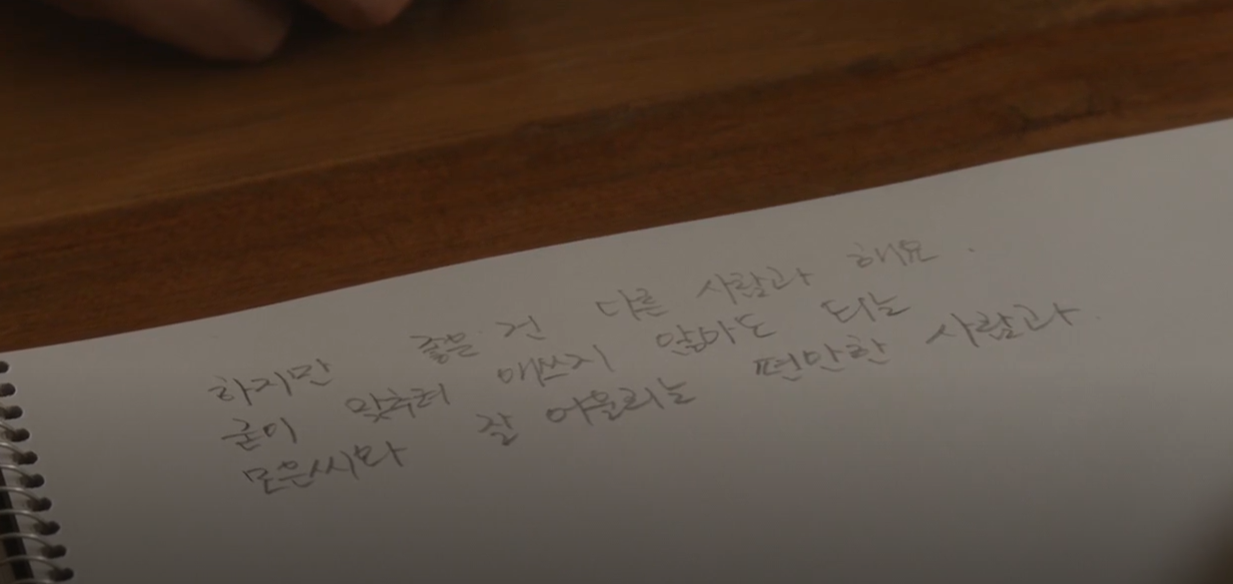 하지만 좋은 건 다른 사람과 해요.
굳이 맞추려 애쓰지 않아도 되는
모은씨와 잘 어울리는 편안한 사람과